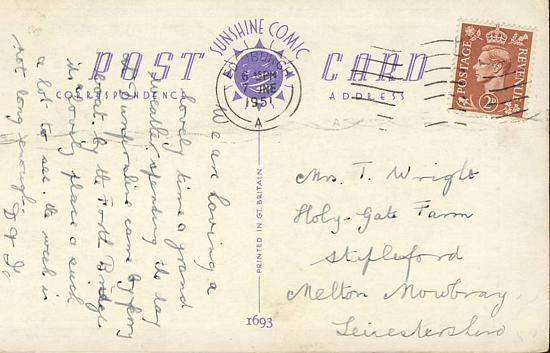 SUNSHINE COMIC
POST CARD
CORRESPONDENCE
ADDRESS
EDINBURGH
6.15PM
7 JNE
1951
A
POSTAGE
REVENUE
2D
We are having a
lovely time & grand
weather, spending the day
at Dunfermline came by ferry
almost by the Forth Bridge
it's a lovely place & such
a lot to see. The week is
not long enough.
D & J.
PRINTED IN GT. BRITAIN
1693
Mrs. T. Wright
Holy-Gate Farm
Stapleford
Melton Mowbray
Leicestershire